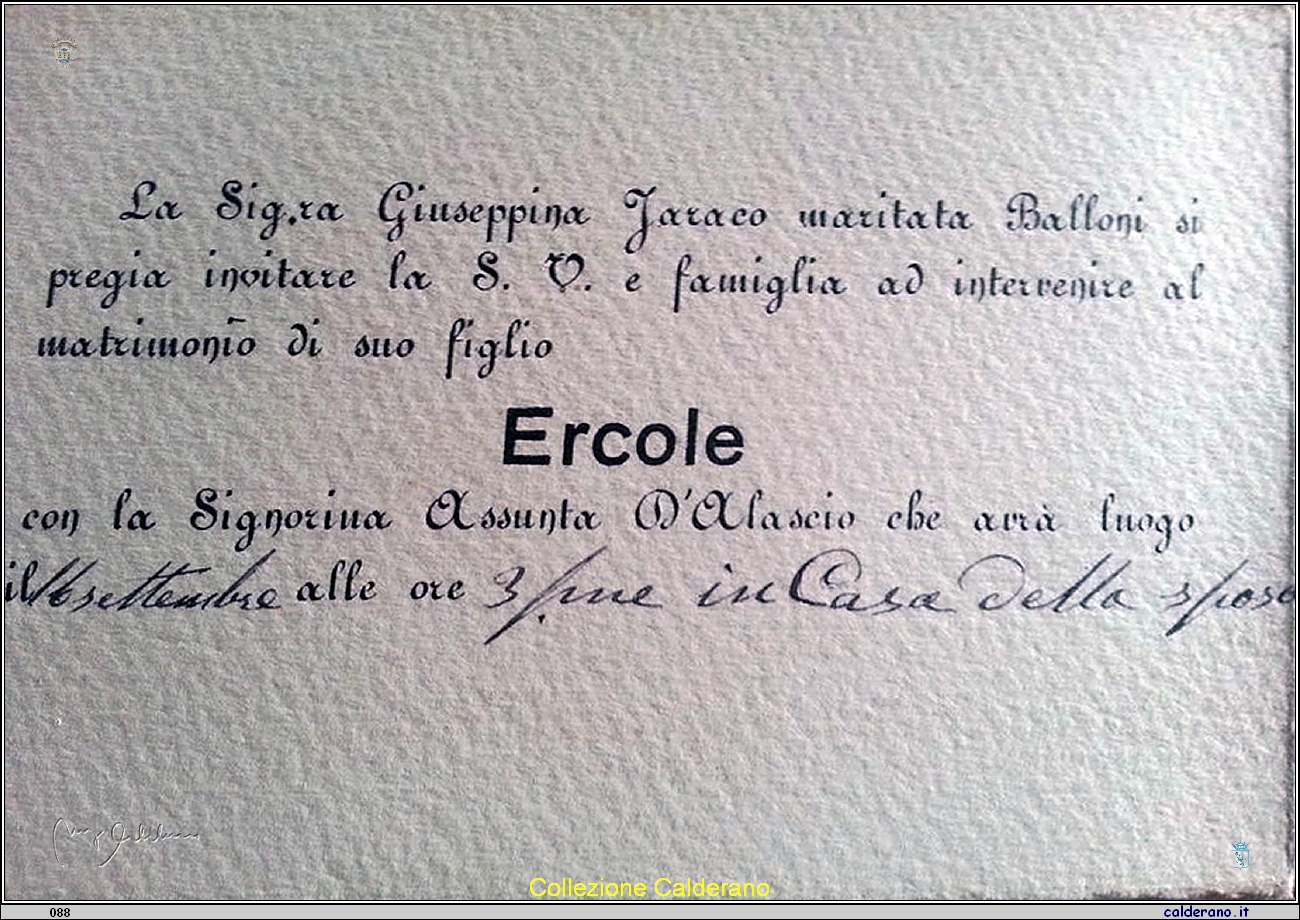 La Sig.ra Giuseppina Jaraco maritata Balloni si
pregia invitare la S. V. e famiglia ad intervenire al
matrimonio di suo figlio
Ercole
con la Signorina Assunta D'Alascio che avrà luogo
il 16 settembre alle ore 3 pme in Casa della sposa
Collezione Calderano
088
calderano.it